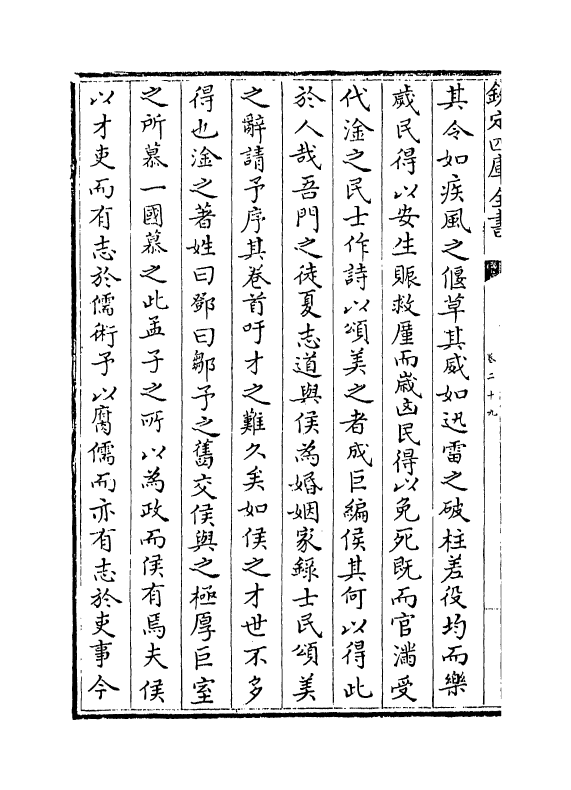 欽定四庫全書
卷二十九
其令如疾風之偃草其威如迅雷之破柱差役均而樂
歲民得以安生賑救厪而嵗凶民得以免死既而官滿受
代淦之民士作詩以頌美之者成巨編侯其何以得此
於人哉吾門之徒夏志道與侯為婚姻家録士民頌美
之辭請予序其卷首吁才之難久矣如侯之才世不多
得也淦之著姓曰鄧曰鄒予之舊交侯與之極厚巨室
之所慕一國慕之此孟子之所以為政而侯有焉夫侯
以才吏而有志於儒術予以腐儒而亦有志於吏事今